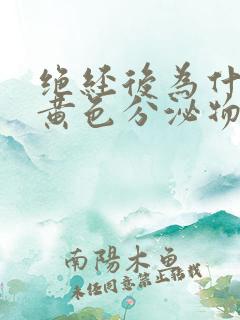 绝经後為什
黄色分泌物
南陽木魚
未经同意禁止转载